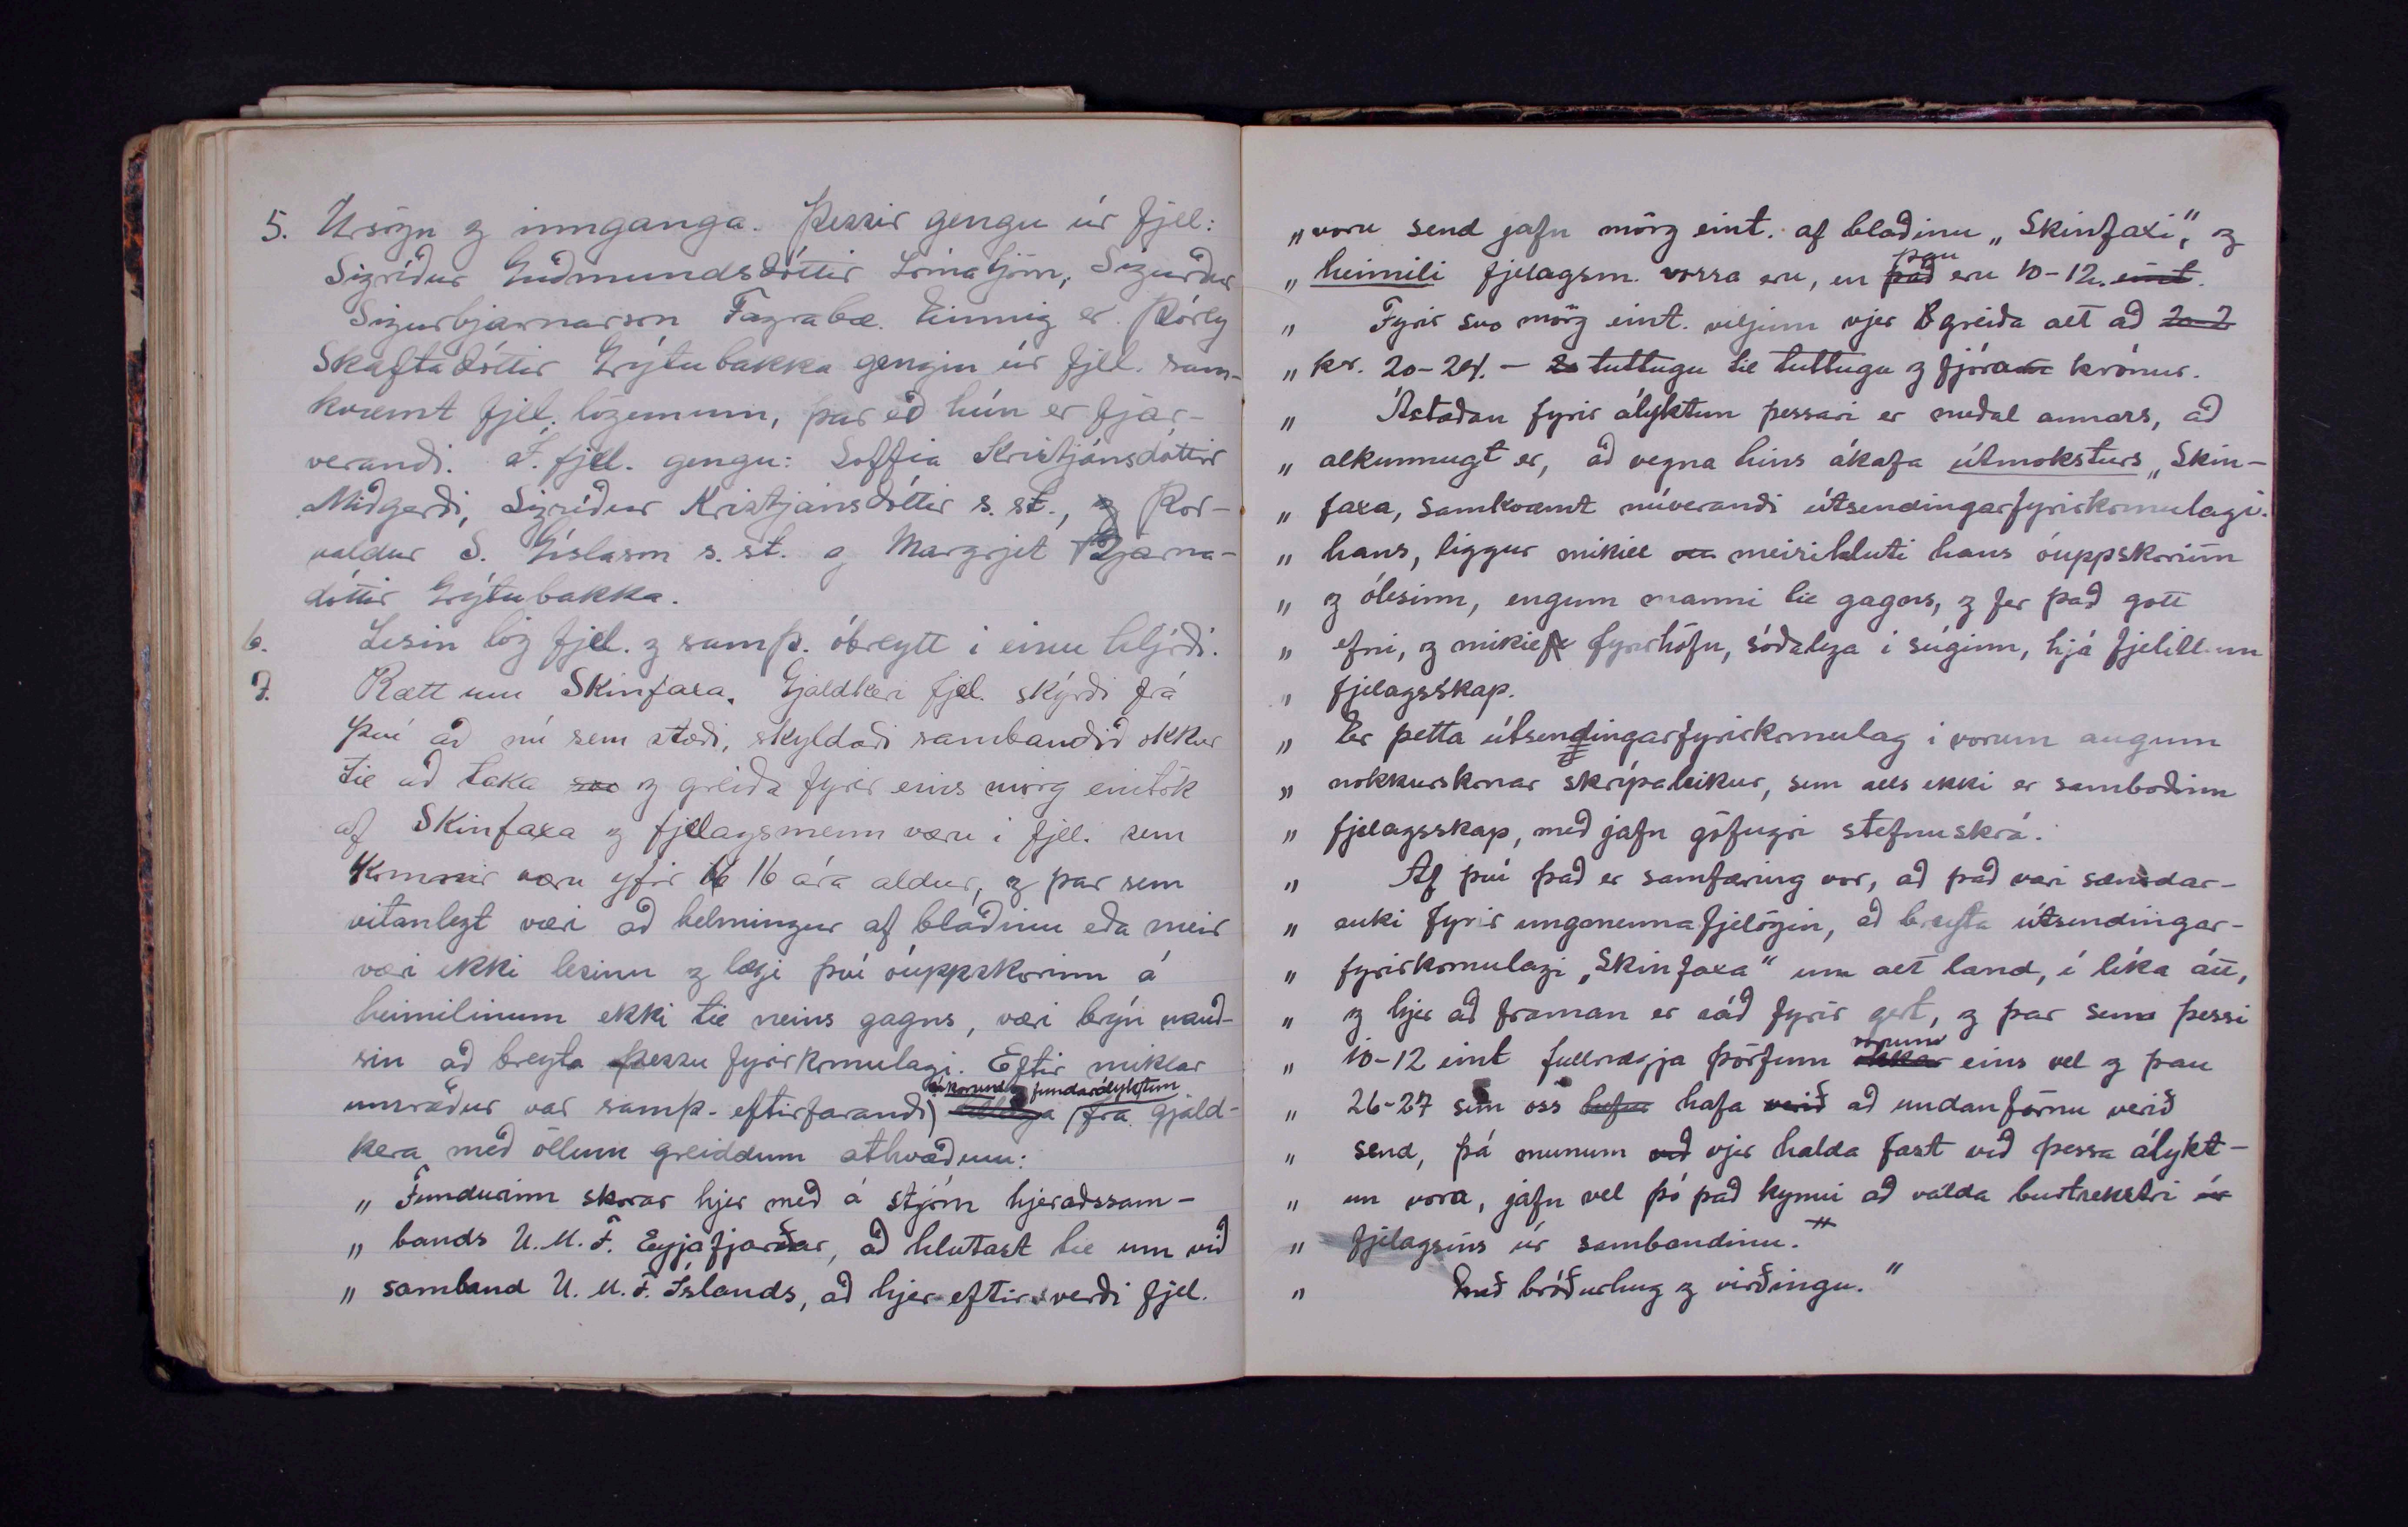 5. Úrsögn og innganga. Þessir gengu úr fjel:
Sigríður Guðmundsdóttir Lómatjörn, Sigurður
Sigurbjarnarson Fagrabæ. Einnig er Þórey
Skaftadóttir Grýtubakka gengin úr fjel. sam-
kvæmt fjel. lögunum, þar eð hún er fjær-
verandi. Í fjel. gengu: Soffía Kristjánsdóttir
Miðgerði, Sigríður Kristjánsdóttir s. st., og Þor-
valdur S. Gíslason s. st. og Margrjet Bjarna-
dóttir Grýtubakka.
6. Lesin lög fjel. og samþ. óbreytt í einu hljóði.
7. Rætt um Skinfaxa. Gjaldkeri fjel. skýrði frá
því að nú sem stæði, skyldaði sambandið okkur
til að taka svo og greiða fyrir eins mörg eintök
af Skinfaxa og fjelagsmenn væru í fjel. sem
komnir væru yfir 16 16 ára aldur, og þar sem
vitanlegt væri að helmingur af blaðinu eða meir
væri ekki lesinn og lægi því óuppskorinn á
heimilinum ekki til neins gagns, væri brýn nauð-
syn að breyta þessu fyrirkomulagi. Eftir miklar
áskorun og fundarályktun
umræður var samþ. eftirfarandi tillaga frá gjald-
kera með öllum greiddum athvæðum:
„ Fundurinn skorar hjer með á stjórn hjeraðssam-
„ bands U.M.F. Eyjafjarðar, að hlutast til um við
„ samband U.M.F. Íslands, að hjer eftir verði fjel.
„ voru send jafn mörg eint. af blaðinu „Skinfaxi“, og
þau
„ heimili fjelagsm. vorra eru, en það eru 10-12. eint.
„ Fyrir svo mörg eint. viljum vjer greiða alt að 20 2
„ kr. 20-24. – 20 tuttugu til tuttugu og fjórar krónur.
„ Ástæðan fyrir ályktun þessari er meðal annars, að
„ alkunnugt er, að vegna hins ákafa útmoksturs „Skin-
„ faxa, samkvæmt núverandi útsendingarfyrirkomulagi
„ hans, liggur mikill meirihluti hans óuppskorinn
„ og ólesinn, engum manni til gagns, og fer það gott
„ efni, og mikil fyrirhöfn, sóðalega í súginn, hjá fjelitlum
„ fjelagsskap.
„ Er þetta útsendingarfyrirkomulag í vorum augum
„ nokkurskonar skrípaleikur, sem alls ekki er samboðinn
„ fjelagsskap, með jafn göfugri stefnuskrá.
„ Af því það er sannfæring vor, að það væri sæmdar-
„ auki fyrir ungmennafjelögin, að breyta útsendingar-
„ fyrirkomulagi „Skinfaxa“ um alt land, í líka átt,
„ og hjer að framan er ráð fyrir gert, og þar sem þessi
vorum
„ 10-12 eint fullnægja þörfum okkar eins vel og þau
„ 26-27 sem oss hefur hafa verið að undanförnu verið
„ send, þá munum við vjer halda fast við þessa álykt-
„ un vora, jafn vel þó það kynni að valda burtrekstri úr
„ fjelagsins úr sambandinu.“
„ Með bróðurhug og virðingu.“